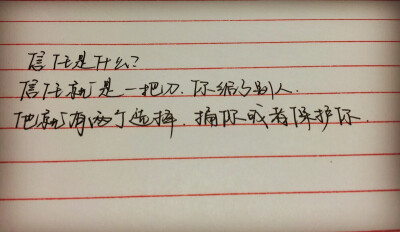 信任是什么?
信任就是一把刀.你给了别人.
他就有两个选择.捅你或者保护你.